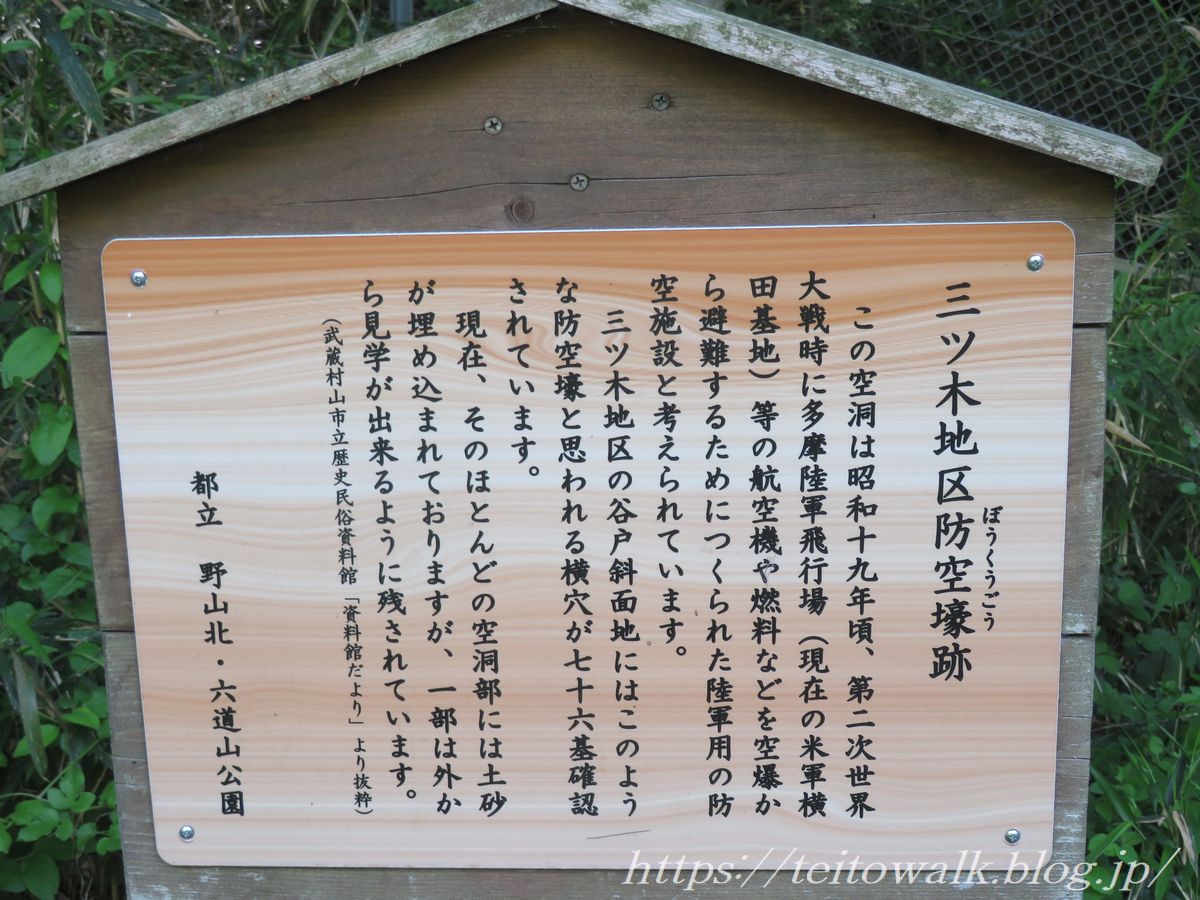 三ツ木地区防空壕跡
ぼうくうごう
この空洞は昭和十九年頃、第二次世界
大戦時に多摩陸軍飛行場（現在の米軍横
田基地）等の航空機や燃料などを空爆か
ら避難するためにつくられた陸軍用の防
空施設と考えられています。
三ツ木地区の谷戸斜面地にはこのよう
な防空壕と思われる横穴が七十六基確認
されています。
現在、そのほとんどの空洞部には土砂
が埋め込まれておりますが、一部は外か
ら見学が出来るように残されています。
（武蔵村山市立歴史民俗資料館「資料館だより」より抜粋）
都立　野山北・六道山公園
https://teitowalk.blog.jp/